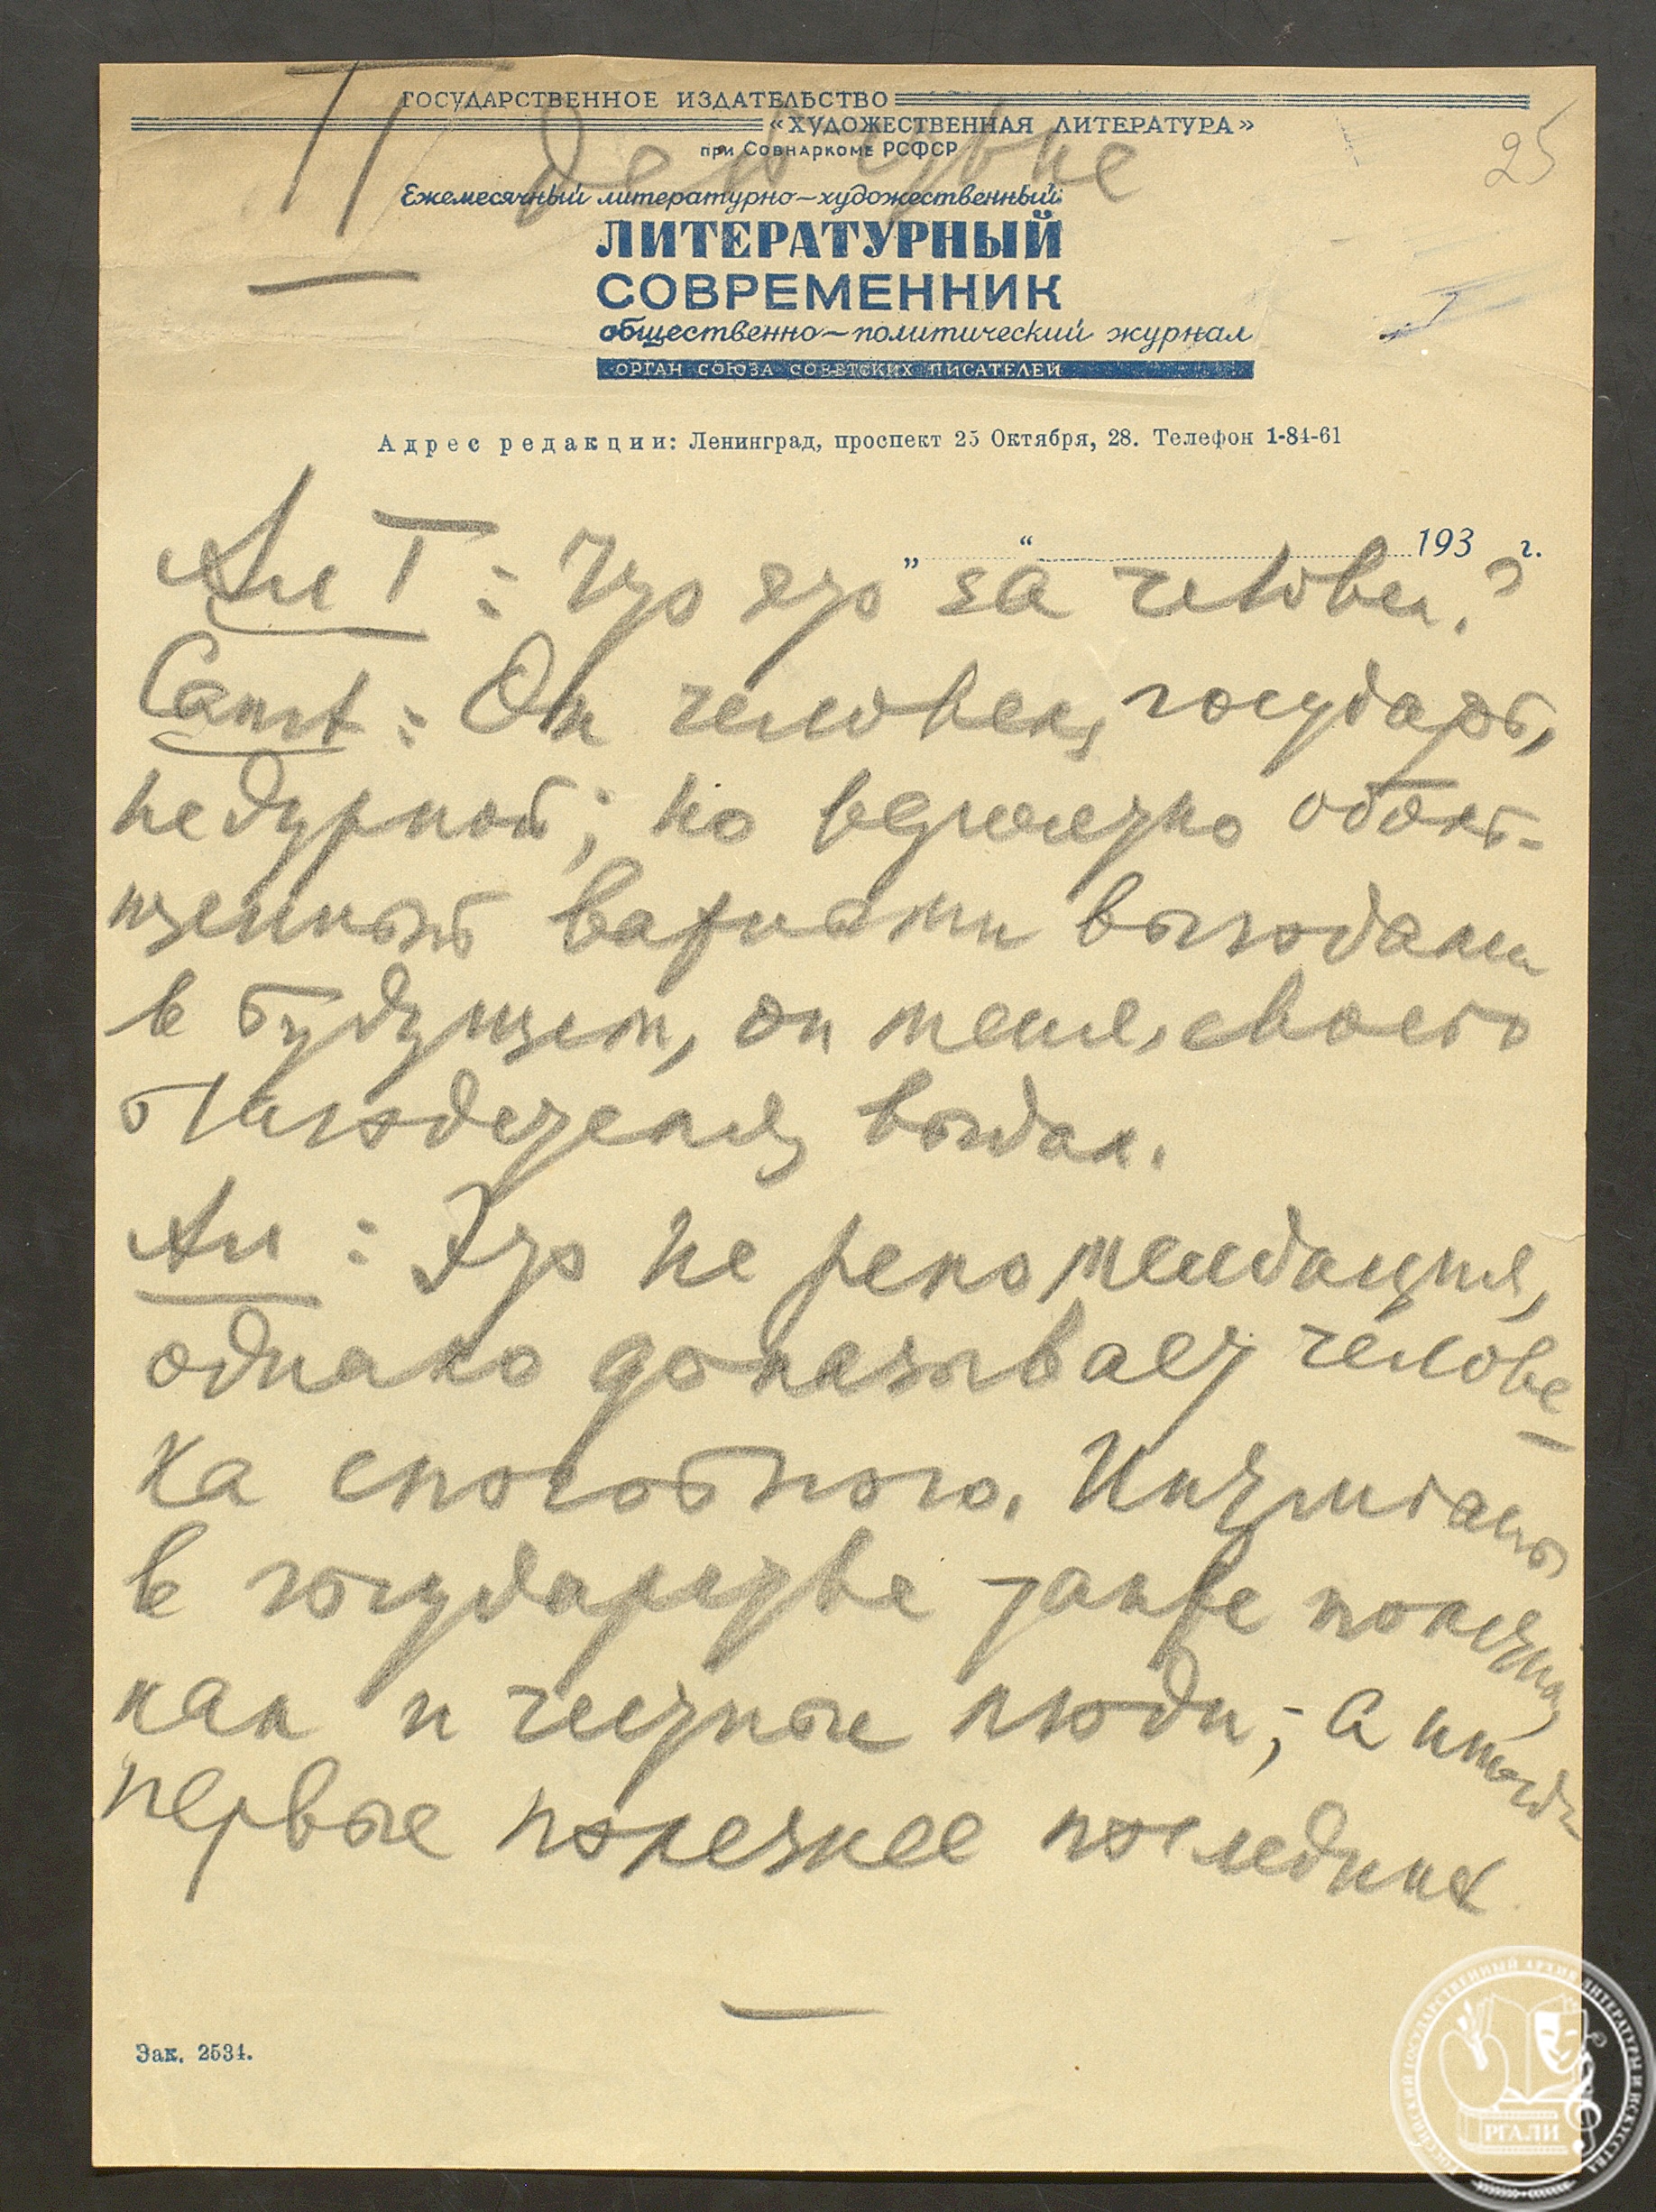 ГОСУДАРСТВЕННОЕ ИЗДАТЕЛЬСТВО
«ХУДОЖЕСТВЕННАЯ ЛИТЕРАТУРА»
при Совнаркоме РСФСР
25
Ежемесячный литературно-художественный
ЛИТЕРАТУРНЫЙ
СОВРЕМЕННИК
общественно-политический журнал
ОРГАН СОЮЗА СОВЕТСКИХ ПИСАТЕЛЕЙ
Адрес редакции: Ленинград, проспект 25 Октября, 28. Телефон 1-84-61
„ “ 193 г.
Ал I: Что это за человек?
Санкт: Он человек, государь,
недурной; но
выгодами
в будущем, он меня, своего
благодетеля, выдал.
Ал: Это не рекомендация,
однако доказывает челове-
ка способного. Интриганы
в государстве также полезны,
как и честные люди; - а иногда
первые полезнее последних
Зак. 2534.
РОССИЙСКИЙ ГОСУДАРСТВЕННЫЙ АРХИВ ЛИТЕРАТУРЫ И ИСКУССТВА
РГАЛИ